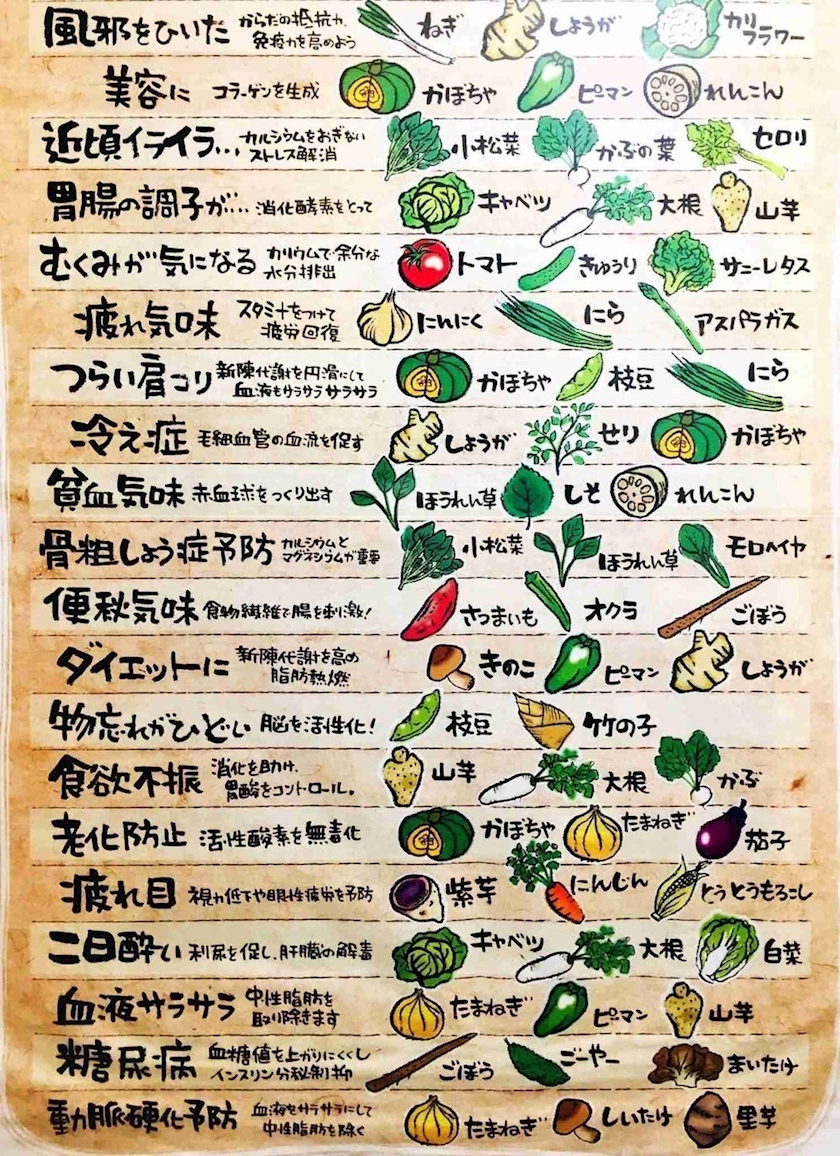 風邪をひいた からだの抵抗力、免疫力を高めよう ねぎ しょうが カリフラワー
美容に コラーゲンを生成 かぼちゃ ピーマン れんこん
近頃イライラ… カルシウムをおぎないストレス解消 小松菜 かぶの葉 セロリ
胃腸の調子が… 消化酵素をとって キャベツ 大根 山芋
むくみが気になる カリウムで余分な水分排出 トマト きゅうり サニーレタス
疲れ気味 スタミナをつけて疲労回復 にんにく にら アスパラガス
つらい肩コリ 新陳代謝を円滑にして血液もサラサラサラサラ かぼちゃ 枝豆 にら
冷え症 毛細血管の血流を促す しょうが せり かぼちゃ
貧血気味 赤血球をつくり出す ほうれん草 しそ れんこん
骨粗しょう症予防 カルシウムとマグネシウムが重要 小松菜 ほうれん草 モロヘイヤ
便秋気味 食物繊維で腸を刺激! さつまいも オクラ ごぼう
ダイエットに 新陳代謝を高め脂肪熱燃 きのこ ピーマン しょうが
物忘れがひどい 脳を活性化! 枝豆 竹の子
食欲不振 消化を助け、胃酸をコントロール。 山芋 大根 かぶ
老化防止 活性酸素を無毒化 かぼちゃ たまねぎ 茄子
疲れ目 視力低下や眼性疲労を予防 紫芋 にんじん とうとうもろこし
二日酔い 利尿を促し、肝臓の解毒 キャベツ 大根 白菜
血液サラサラ 中性脂肪を取り除きます たまねぎ ピーマン 山芋
糖尿病 血糖値を上がりにくくしインスリン分秘制抑 ごぼう ごーやー まいたけ
動脈硬化予防 血液をサラサラにして中性脂肪を除く たまねぎ しいたけ 里芋